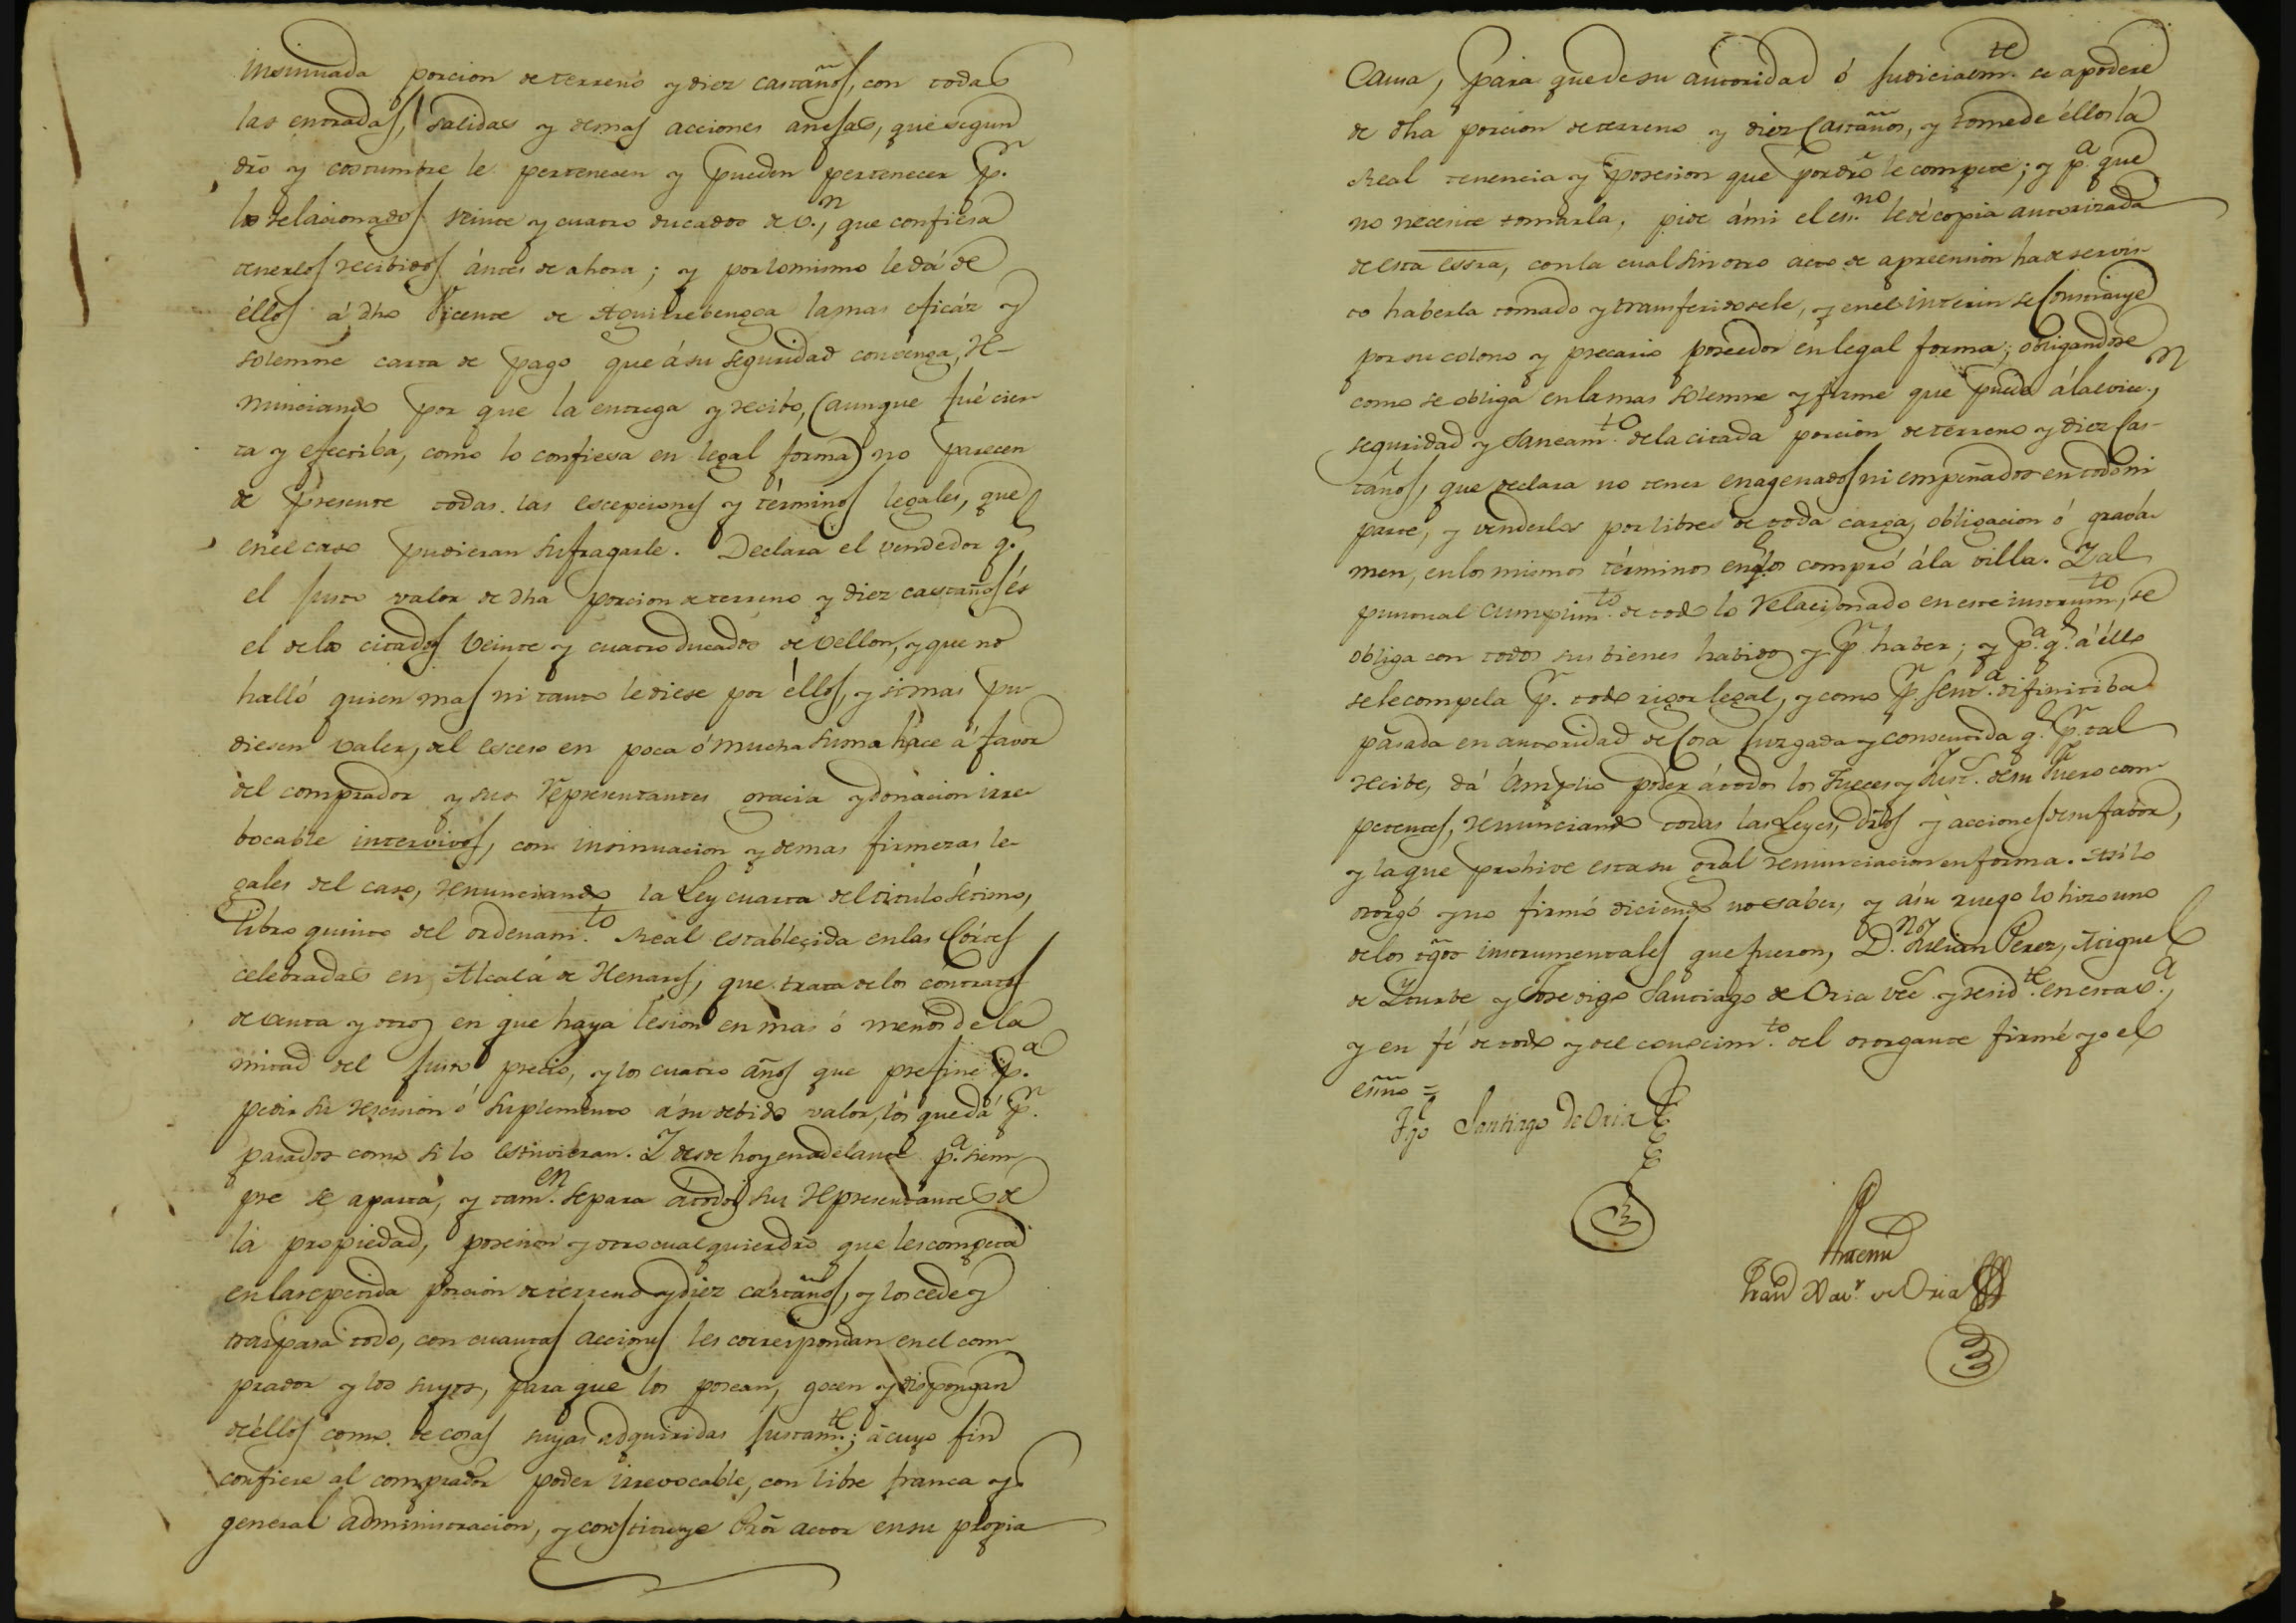 insinuada porcion de terreno y diez castaños, con todas
las entradas, salidas y demas acciones anesas, que segun
dro y costumbre le pertenecen y pueden pertenecer pr.
los relacionados veinte y cuatro ducados de v.n, que confiesa
tenerlos recibidos ántes de ahora; y por lo mismo le dá de
éllos á dho Vicente de Aguirrebengoa la mas eficáz y
solemne carta de pago que á su seguridad convenga, re-
nunciando por que la entrega y recibo, (aunque fué cier
ta y efectiba, como lo confiesa en legal forma) no parecen
de presente todas las escepciones y términos legales, que
en el caso pudieran sufragarle. Declara el vendedor q.e
el justo valor de dha porcion de terreno y diez castaños és
el de los citados veinte y cuatro ducados de vellon, y que no
halló quien mas ni tanto le diese por éllos, y si mas pu
diesen valer, del esceso en poca ó mucha suma hace á favor
del comprador y sus representantes gracia y donacion irre
bocable intervivos, con insinuacion y demas firmezas le-
gales del caso, renunciando la Ley cuarta del titulo sétimo,
Libro quinto del ordenam.to Real establecida en las Córtes
celebradas en Alcalá de Henares, que trata de los contratos
de venta y otros en que haya lesion en mas ó menos de la
mitad del justo precio, y los cuatro años que prefine p.a
pedir su rescision ó suplemento á su debido valor, los que dá pr.
pasados como si lo estuvieran. Y desde hoy en adelante p.a siem
pre se aparta, y tam.en separa á todos sus representantes de
la propiedad, posesion y otro cualquier dro que les competa
en la repetida porcion de terreno y diez castaños, y los cede y
traspasa todo, con cuantas acciones les correspondan en el com
prador y los suyos, para que los posean, gocen y dispongan
de éllos como de cosas suyas adquiridas justam.te; á cuyo fin
confiere al comprador poder irrevocable, con libre franca y
general administracion, y constituye Pror actor en su propia
Causa, para que de su autoridad ó judicialm.te se apodere
de dha porcion de terreno y diez castaños, y tome de éllos la
Real tenencia y posesion que por dro le compete; y p.a que
no necesite tomarla, pide á mi el es.no le dé copia autorizada
de esta essra, con la cual sin otro acto de apreension ha de ser vis
to haberla tomado y transferidosele, y en el interin se constituye
por su colono y precario poseedor en legal forma; obligandose
como se obliga en la mas solemne y firme que pueda á la evic.n,
seguridad y saneam.to de la citada porcion de terreno y diez cas-
taños, que declara no tener enagenados ni empeñados en todo ni
parte, y venderlos por libres de toda carga, obligacion ó gravá
men, en los mismos términos en q.e los compró á la villa. Y al
puntual cumplim.to de todo lo relacionado en este instrum.to, se
obliga con todos sus bienes habidos y pr. haber; y p.a q.e á éllo
se le compela pr. todo rigor legal, y como pr. sent.a difinitiba
pasada en autoridad de Cosa juzgada y consentida q.e pr. tal
recibe, dá ámplio poder á todos los Jueces y Just.s de su fuero com
petentes, renunciando todas las Leyes, dros y acciones de su favor,
y la que prohive esta su gral renunciacion en forma. Asi lo
otorgó y no firmó diciendo no saber, y á su ruego lo hizo uno
de los tgos instrumentales que fueron, D.n Julian Perez, Miguel
de Yturbe y Jose digo Santiago de Oria vec.s y resid.tes en esta v.a,
y en fé de todo y del conocim.to del otorgante firmé yo el
esno =
Tgo Santiago de Oria
Antemi
Fran.co Xav.r de Oria